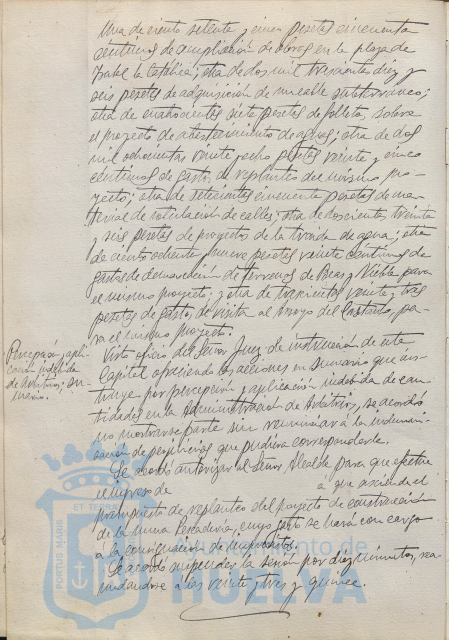 Una de ciento setenta y cinco pesetas cincuenta
centimos de ampliación de obras en la plaza de
Isabel la Católica; otra de dos mil trescientas diez y
seis pesetas de adquisición de un cable subterraneo;
otra de cuatrocientas siete pesetas de folleto, sobre
el proyecto de abastecimiento de aguas; otra de dos
mil ochocientas veinte y ocho pesetas veinte y cinco
centimos de gastos de replanteo del mismo pro-
yecto; otra de setecientas cincuenta pesetas de ma-
terial de rotulacion de calles; otra de doscientas treinta
y seis pesetas de proyecto de la traida de agua; otra
de ciento ochenta y nueve pesetas veinte centimos de
gastos de demarcación de terrenos de Beas y Niebla para
el mismo proyecto; y otra de trescientas veinte y tres
pesetas de gastos de visita al arroyo del pa-
ra el mismo proyecto.
Percepción y apli-
cación indebida
de arbitrios; su-
mario.
Visto oficio del Señor Juez de instrucción de esta
Capital ofreciendo las acciones en sumario que ins-
truye por percepción y aplicación indebida de can-
tidades en la administración de Arbitrios, se acordó
no mostrarse parte sin renunciar a la indemni-
zación de perjuicios que pudiera corresponderle.
Se acordó autorizar al Señor Alcalde para que efectue
el ingreso de a que asciende el
presupuesto de replanteo del proyecto de construcción
de la nueva Pescadería, cuyo gasto se hará con cargo
a la consignación de imprevistos.
Se acordó suspender la sesión por diez minutos, rea-
nudandose a las veinte y tres y quince.
PORTUS MARIS
ET TERRAE
Ayuntamiento de
HUELVA